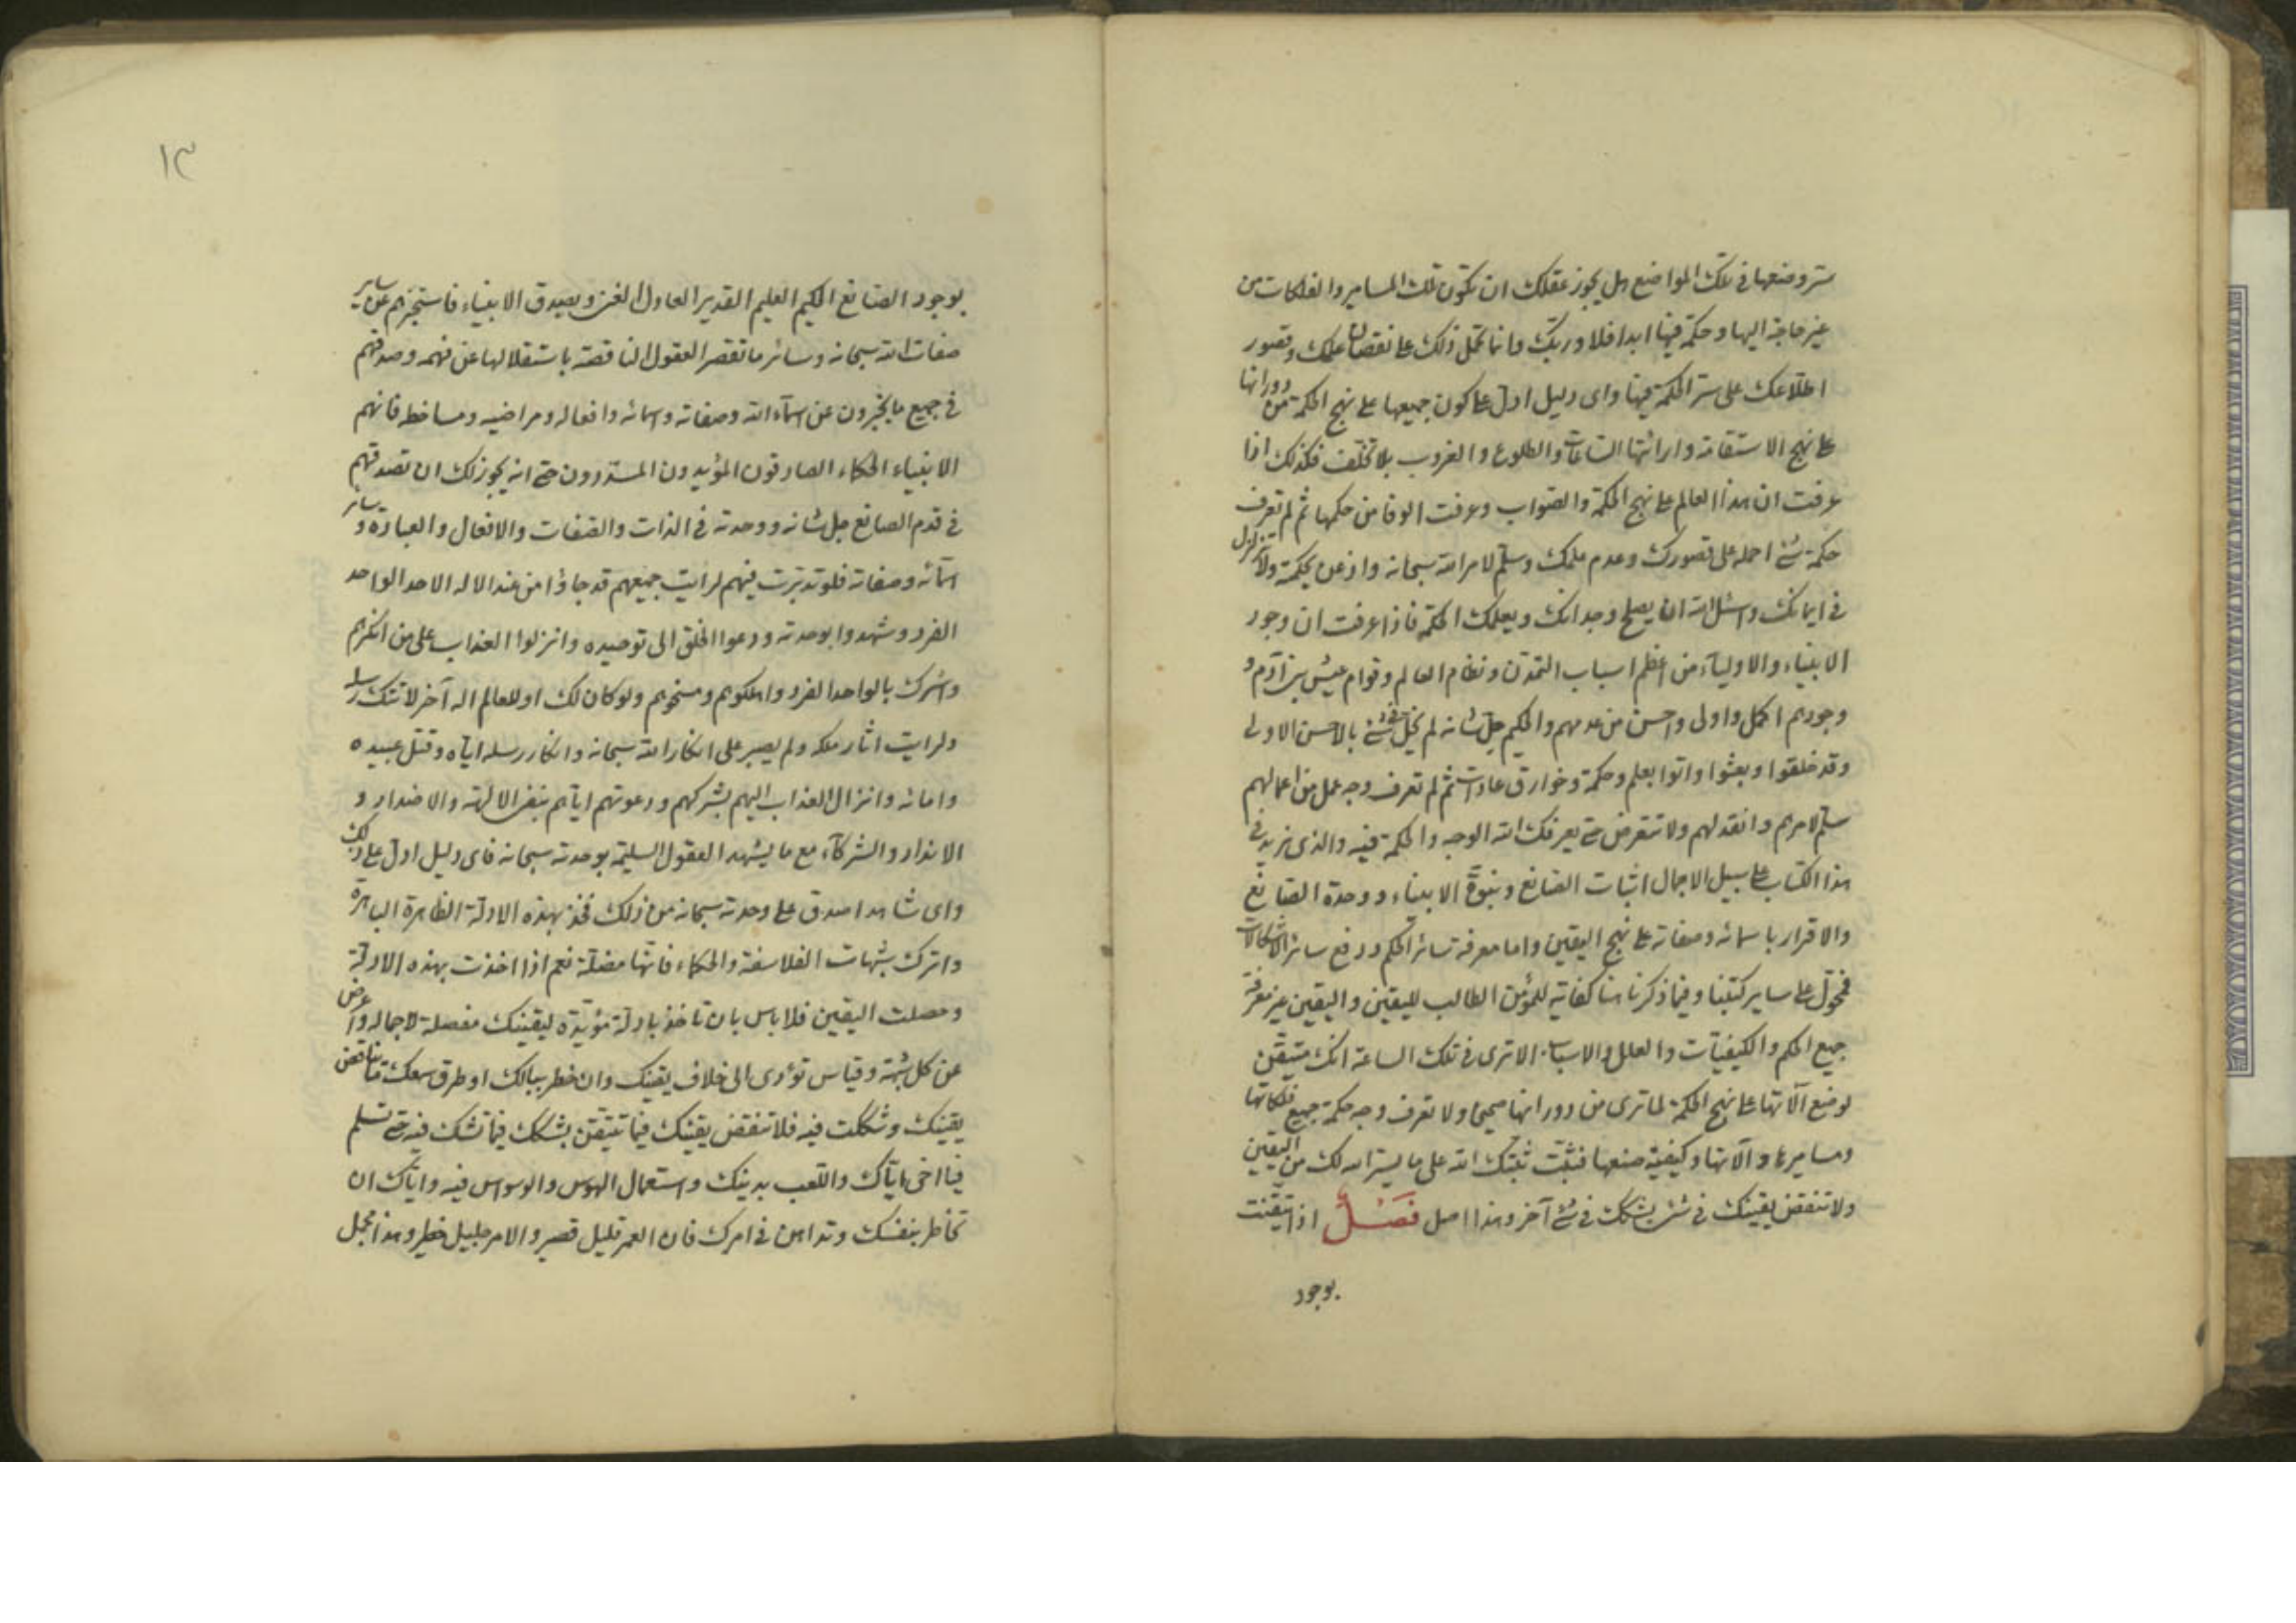 سرّ وضعها في تلك المواضع هل يجوز عقلك ان تكون تلك المسامير والفلكات من
غير حاجة اليها وحكمة فيها ابدا فلا وربّك وانما تحمل ذلك على نقصان علمك وقصور
اطلاعك على سرّ الحكمة فيها واى دليل ادلّ على كون جميعها على نهج الحكمة من دورانها
على نهج الاستقامة وارائتها الساعات والطلوع والغروب بلا تخلّف فكذلك اذا
عرفت ان هذا العالم على نهج الحكمة والصواب وعرفت الوفا من حكمها ثم لم تعرف
حكمة شئ احمله على قصورك وعدم علمك وسلّم لامر الله سبحانه واذعن بحكمة ولا تتزلزل
في ايمانك واسئل الله ان يصلح وجدانك ويعلمك الحكمة فاذا عرفت ان وجود
الانبياء والاولياء من اعظم اسباب التمدّن ونظام العالم وقوام عيش بنى آدم و
وجودهم اكمل واولى واحسن من عدمهم والحكيم جلّ شانه لم يخلّ في شئ بالاحسن الاولى
وقد خلقوا وبعثوا واتوا بعلم وحكمة وخوارق عادات ثم لم تعرف وجه عمل من اعمالهم
سلّم لامرهم وانقد لهم ولا تتعرض حتى يعرفك الله الوجه والحكمة فيه والذى نريد في
هذا الكتاب على سبيل الاجمال اثبات الصانع ونبوّة الانبياء ووحدة الصانع
والاقرار باسمائه وصفاته على نهج اليقين واما معرفة سائر الحكم ودفع سائر الاشكالات
فمحوّل على ساير كتبنا وفيما ذكرنا هنا كفاية للمؤمن الطالب لليقين واليقين غير معرفة
جميع الحكم والكيفيّات والعلل والاسباب الا ترى في تلك الساعة انك متيقّن
لوضع آلاتها على نهج الحكمة لما ترى من دورانها صحيحا ولا تعرف وجه حكمة جميع فلكاتها
ومساميرها وآلاتها وكيفيّة صنعها فتثبّت ثبّتك الله على ما يسّر الله لك من اليقين
ولا تنقض يقينك في شئ بشكّك في شئ آخر وهذا اصل فصل اذا تيقّنت
بوجود
١٣
بوجود الصانع الحكيم العليم القدير العادل الغنى وبصدق الانبياء فاستخبرهم عن ساير
صفات الله سبحانه وسائر ما تقصر العقول الناقصة باستقلالها عن فهمه وصدقهم
في جميع ما يخبرون عن اسماء الله وصفاته واسمائه وافعاله ومراضيه ومساخطه فانهم
الانبياء الحكماء الصادقون المؤيدون المسدّدون حتى انه يجوز لك ان تصدقهم
في قدم الصانع جل شانه ووحدته في الذات والصفات والافعال والعبادة وسائر
اسمائه وصفاته فلو تدبّرت فيهم لرايت جميعهم قد جاؤا من عند الاله الاحد الواحد
الفرد وشهدوا بوحدته ودعوا الخلق الى توحيده وانزلوا العذاب على من انكرهم
واشرك بالواحد الفرد واهلكوهم ومسخوهم ولو كان لك او للعالم اله آخر لاتتك رسله
ولرايت اثار ملكه ولم يصبر على انكار الله سبحانه وانكار رسله ايّاه وقتل عبيده
وامائه وانزال العذاب اليهم بشركهم ودعوتهم ايّاهم بنفى الالهة والاضداد و
الانداد والشركاء مع ما يشهد العقول السليمة بوحدته سبحانه فاى دليل ادلّ على ذلك
واى شاهد اصدق على وحدته سبحانه من ذلك فخذ بهذه الادلّة الظاهرة الباهرة
واترك شبهات الفلاسفة والحكماء فانّها مضلّة نعم اذا اخذت بهذه الادلّة
وحصلت اليقين فلا باس بان تاخذ بادلّة مؤيّدة ليقينك مفصلة لاجماله واعرض
عن كل شبهة وقياس تؤدى الى خلاف يقينك وان خطر ببالك او طرق سمعك ما يناقض
يقينك وشككت فيه فلا تنقض يقينك فيما تتيقّن بشكّك فيما تشك فيه حتى تسلم
فيا اخى ايّاك واللّعب بدينك واستعمال الهوس والوسواس فيه وايّاك ان
تخاطر بنفسك وتداهن في امرك فان العمر قليل قصير والامر جليل خطير وهذا مجمل